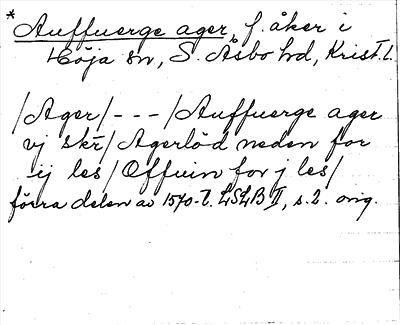 * Auffuerge ager, f. åker i
Höja sn, S. Åsbo hd, Krist. l.
/Ager/ - - - /Auffuerge ager
vj skr/ Agerlöd neden for
ij les/ Offuin for j les/
förra delen av 1570-t. LSLB II, s. 2. orig.